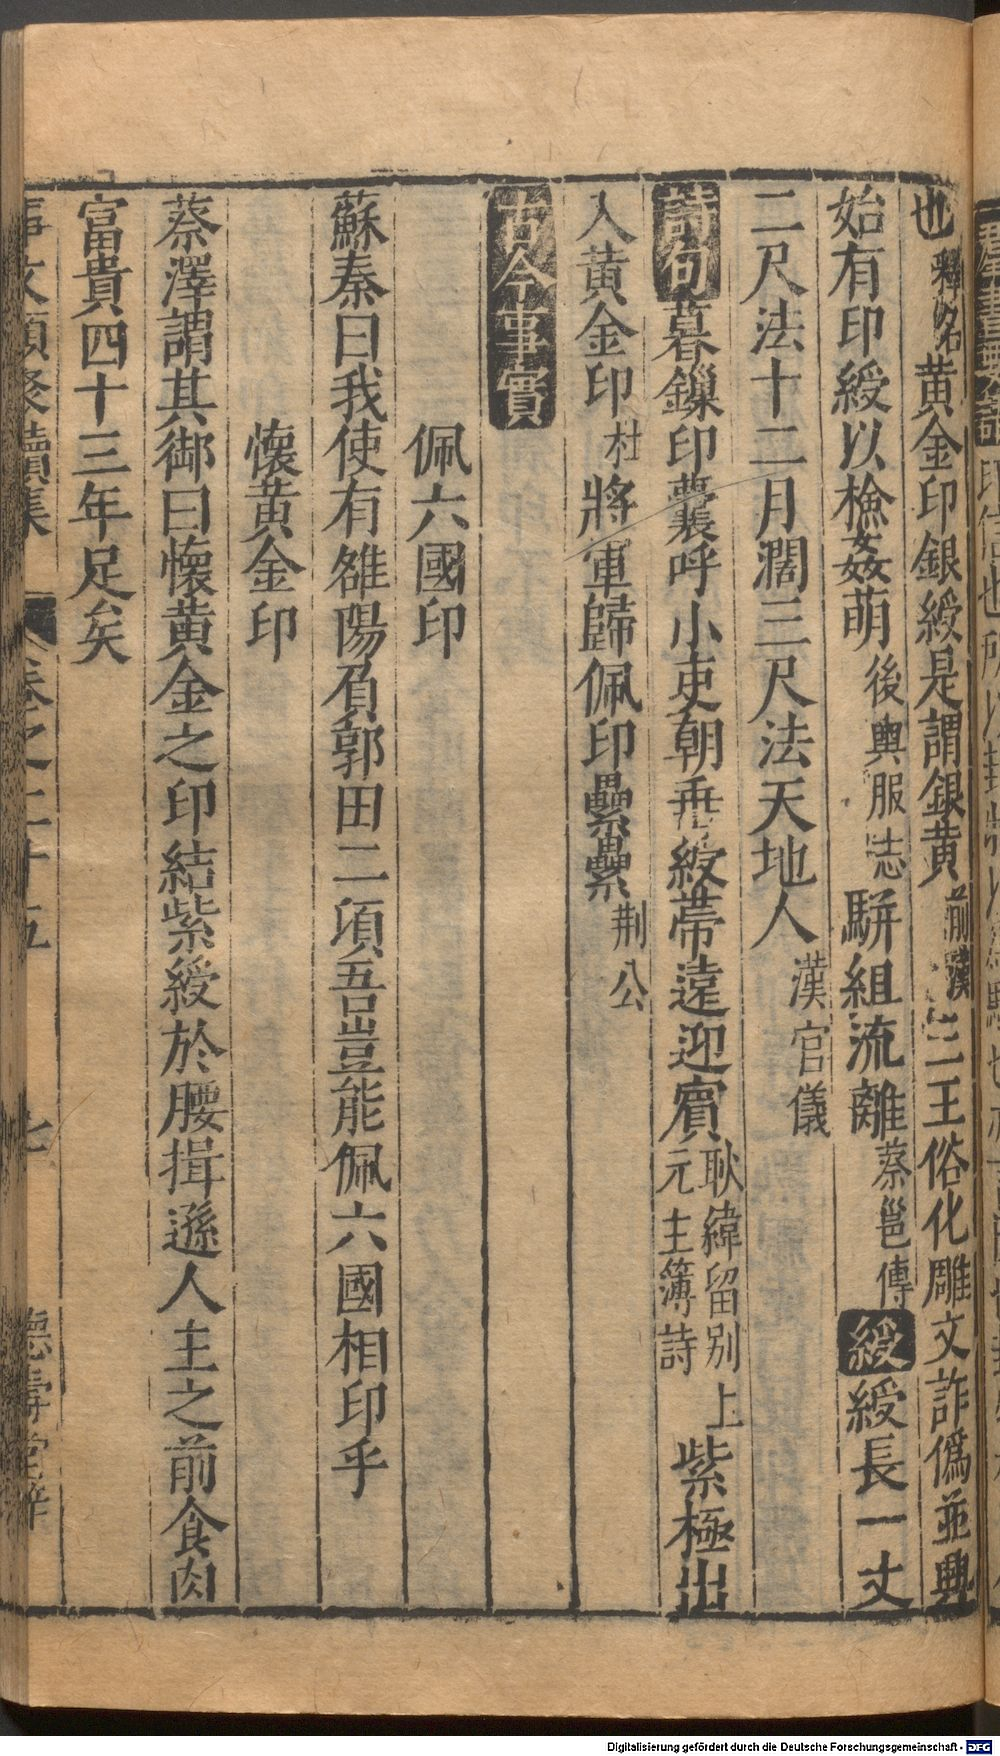 也釋名黄金印銀綬是謂銀黄前漢三王俗化雕文詐僞並興
始有印綬以檢姦萌後輿服志駢組流離蔡邕傳綬綬長一丈
二尺法十二月濶三尺法天地人漢官儀
詩句暮鏁印囊呼小吏朝垂綬帶遠迎賓耿緯留別上元主簿詩紫極出
入黄金印杜將軍歸佩印纍纍荆公
古今事實
佩六國印
蘇秦曰我使有雒陽負郭田二項吾豈能佩六國相印乎
懷黄金印
蔡澤謂其御曰懷黄金之印結紫綬於腰揖遜人主之前食肉
富貴四十三年足矣
事文類聚續集 卷之二十五 七 德壽堂梓
Digitalisierung gefördert durch die Deutsche Forschungsgemeinschaft - DFG